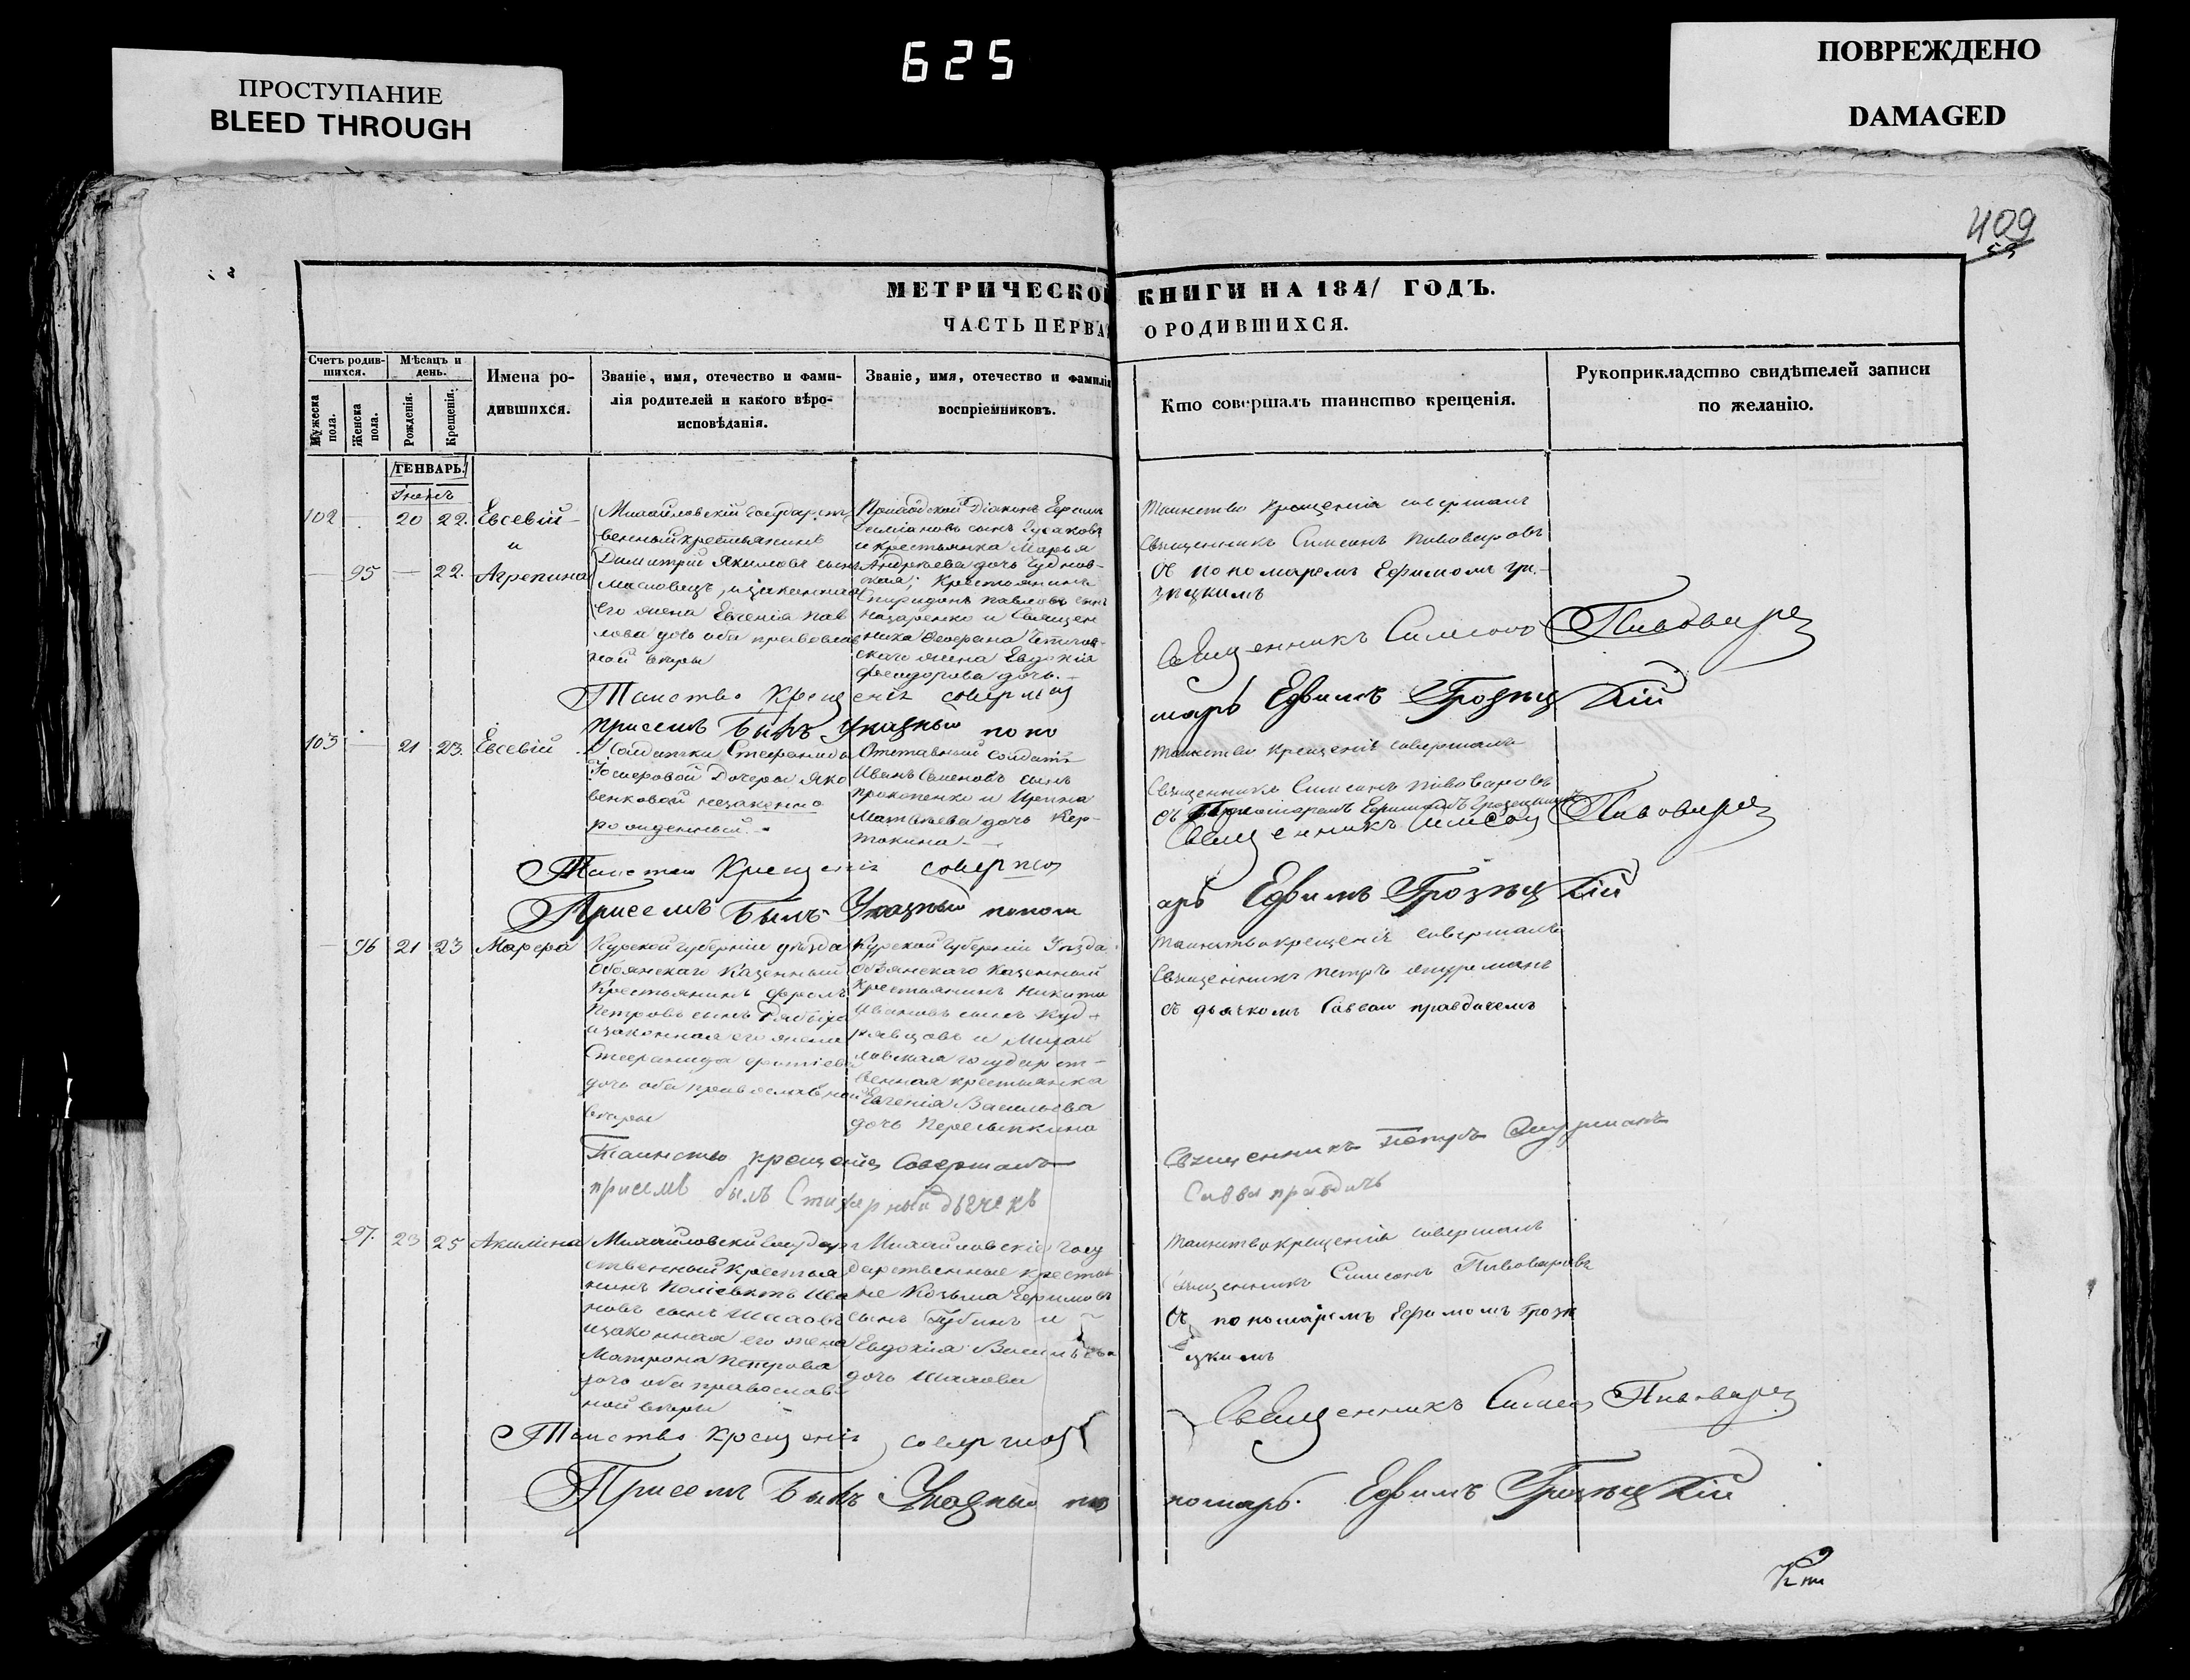 625
ПРОСТУПАНИЕ
BLEED THROUGH
ПОВРЕЖДЕНО
DAMAGED
409
МЕТРИЧЕСКОЙ КНИГИ НА 1841 ГОДЪ.
ЧАСТЬ ПЕРВАЯ О РОДИВШИХСЯ.
Счетъ родив-
шихся.
Мѣсяцъ и
день.
Мужеска
пола.
Женска
пола.
Рожденія.
Крещенія.
Имена ро-
дившихся.
Званіе, имя, отечество и фами-
лія родителей и какого вѣро-
исповѣданія.
Званіе, имя, отечество и фамилія
воспріемниковъ.
Кто совершалъ таинство крещенія.
Рукоприкладство свидѣтелей записи
по желанію.
ГЕНВАРЬ.
102 20 22. Евсевій
и
95 22. Агрепина
Михайловскій государст
венный крестьянинъ
Димитрій Якимовъ сынъ
его жена Евгенія Пав
лова дочь оба православ
ной вѣры
Приходской Діаконъ
Деміановъ сынъ Гусаковъ
и крестьянка Марья
Андреева дочь Чуднов-
ская; Крестьянинъ
Спиридонъ Павловъ сынъ
Назаренко и Священ
ника
жена Евдокія
Феодорова дочь.
Таинство Крещенія совершал
Священникъ Симеонъ Пивоваровъ
съ пономаремъ Ефимомъ Гро-
зецкимъ
Таинство Крещенія совершал Священникъ Симеонъ Пивоваров
присемъ былъ Указный пономарь Ефимъ Грозецкій
103 21 23. Евсевій
У Солдатки Стефаниды
дочери Яко
венковой незаконно
рожденный.
Отставный солдатъ
Иванъ Семеновъ сынъ
Прокопенко и Ирина
Матвѣева дочь
Таинство крещенія совершалъ
Священникъ Симеонъ Пивоваровъ
съ пономаремъ Ефимомъ Грозецкимъ
Священникъ Симеон Пивоваров
Таинство Крещенія совершал
Присемъ былъ Указный пономарь Ефимъ Грозецкій
96 21 23 Марфа
Курской губерніи уѣзда
Обоянскаго Казенный
Крестьянинъ
Петровъ сынъ
и законная его жена
Стефанида
дочь оба православной
вѣры
Курской губерніи Уѣзда
Обоянскаго Казенный
Крестьянинъ Никита
Ивановъ сынъ Куд-
рявцовъ и Михай
ловская государст-
венная крестьянка
Евгенія Васильева
дочь Пересыпкина
Таинство крещенія совершалъ
Священникъ Петръ
съ дьячкомъ Саввою Правдичемъ
Таинство крещенія Совершалъ Священникъ Петръ
присемъ былъ Стихарный дьячекъ Савва Правдичь
97. 23 25 Акилина
Михайловскій государ
ственный Крестья
нинъ
новъ сынъ
и законная его жена
Матрона Петрова
дочь оба православ
ной вѣры
Михайловскіе госу
дарственные крестья
не Козьма Ефимовъ
сынъ Губинъ и
Евдокія Васильева
дочь
Таинство крещенія совершалъ
Священникъ Симеонъ Пивоваровъ
Съ пономаремъ Ефимомъ Гроз
ецкимъ
Таинство Крещенія совершал Священникъ Симеон Пивоваров
Присемъ былъ Указный пономарь. Ефимъ Грозецкій